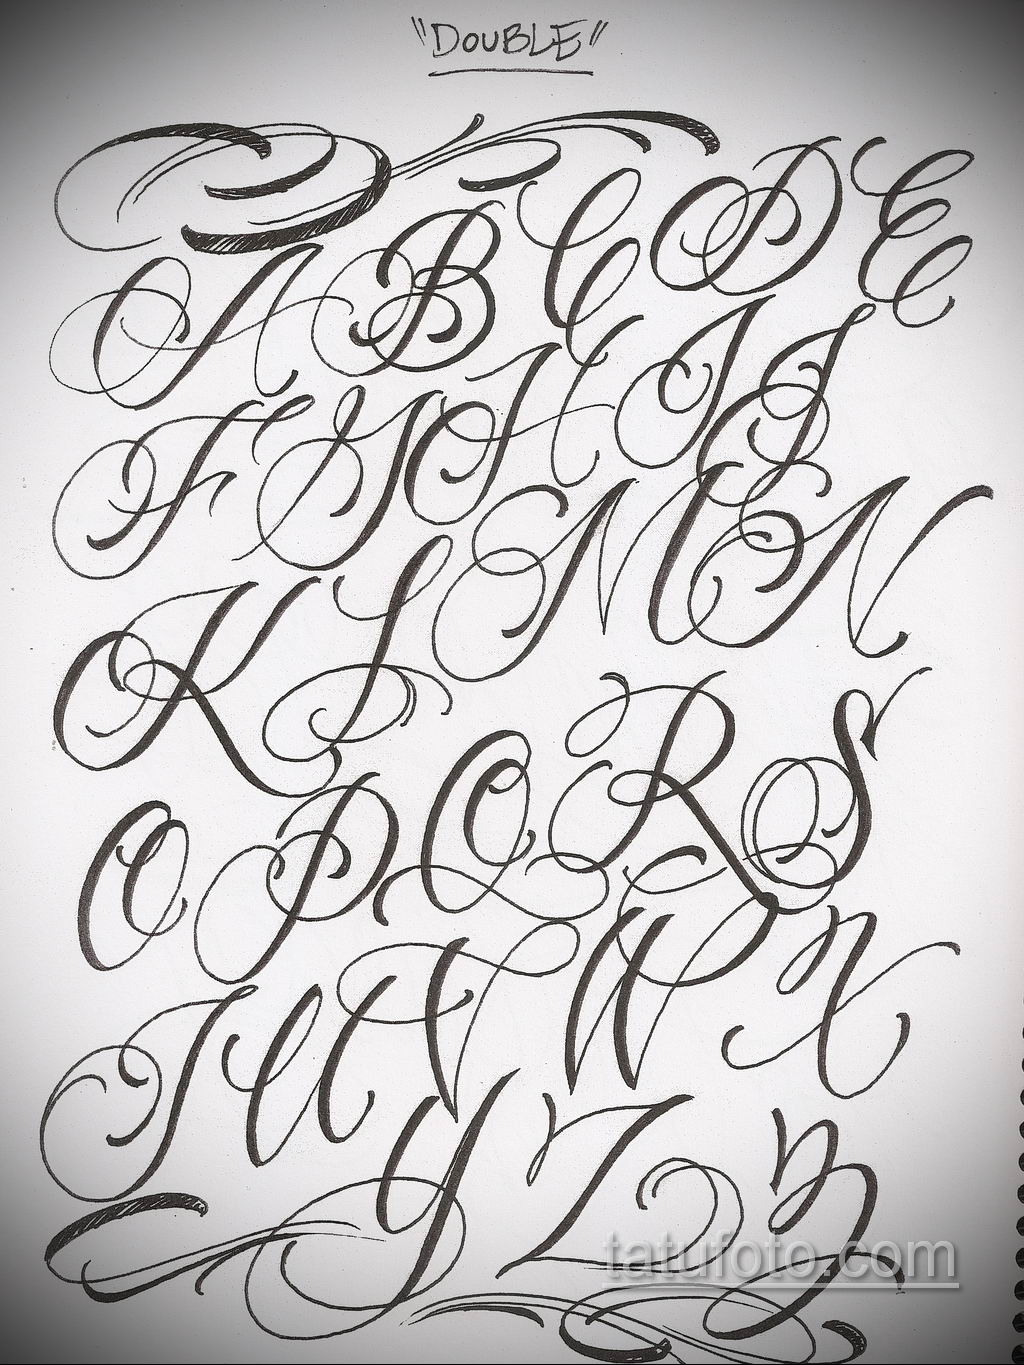 "DOUBLE"
A B C D E
F G H I J
K L M N
O P Q R S
T U V W X
Y Z Z
tatufoto.com